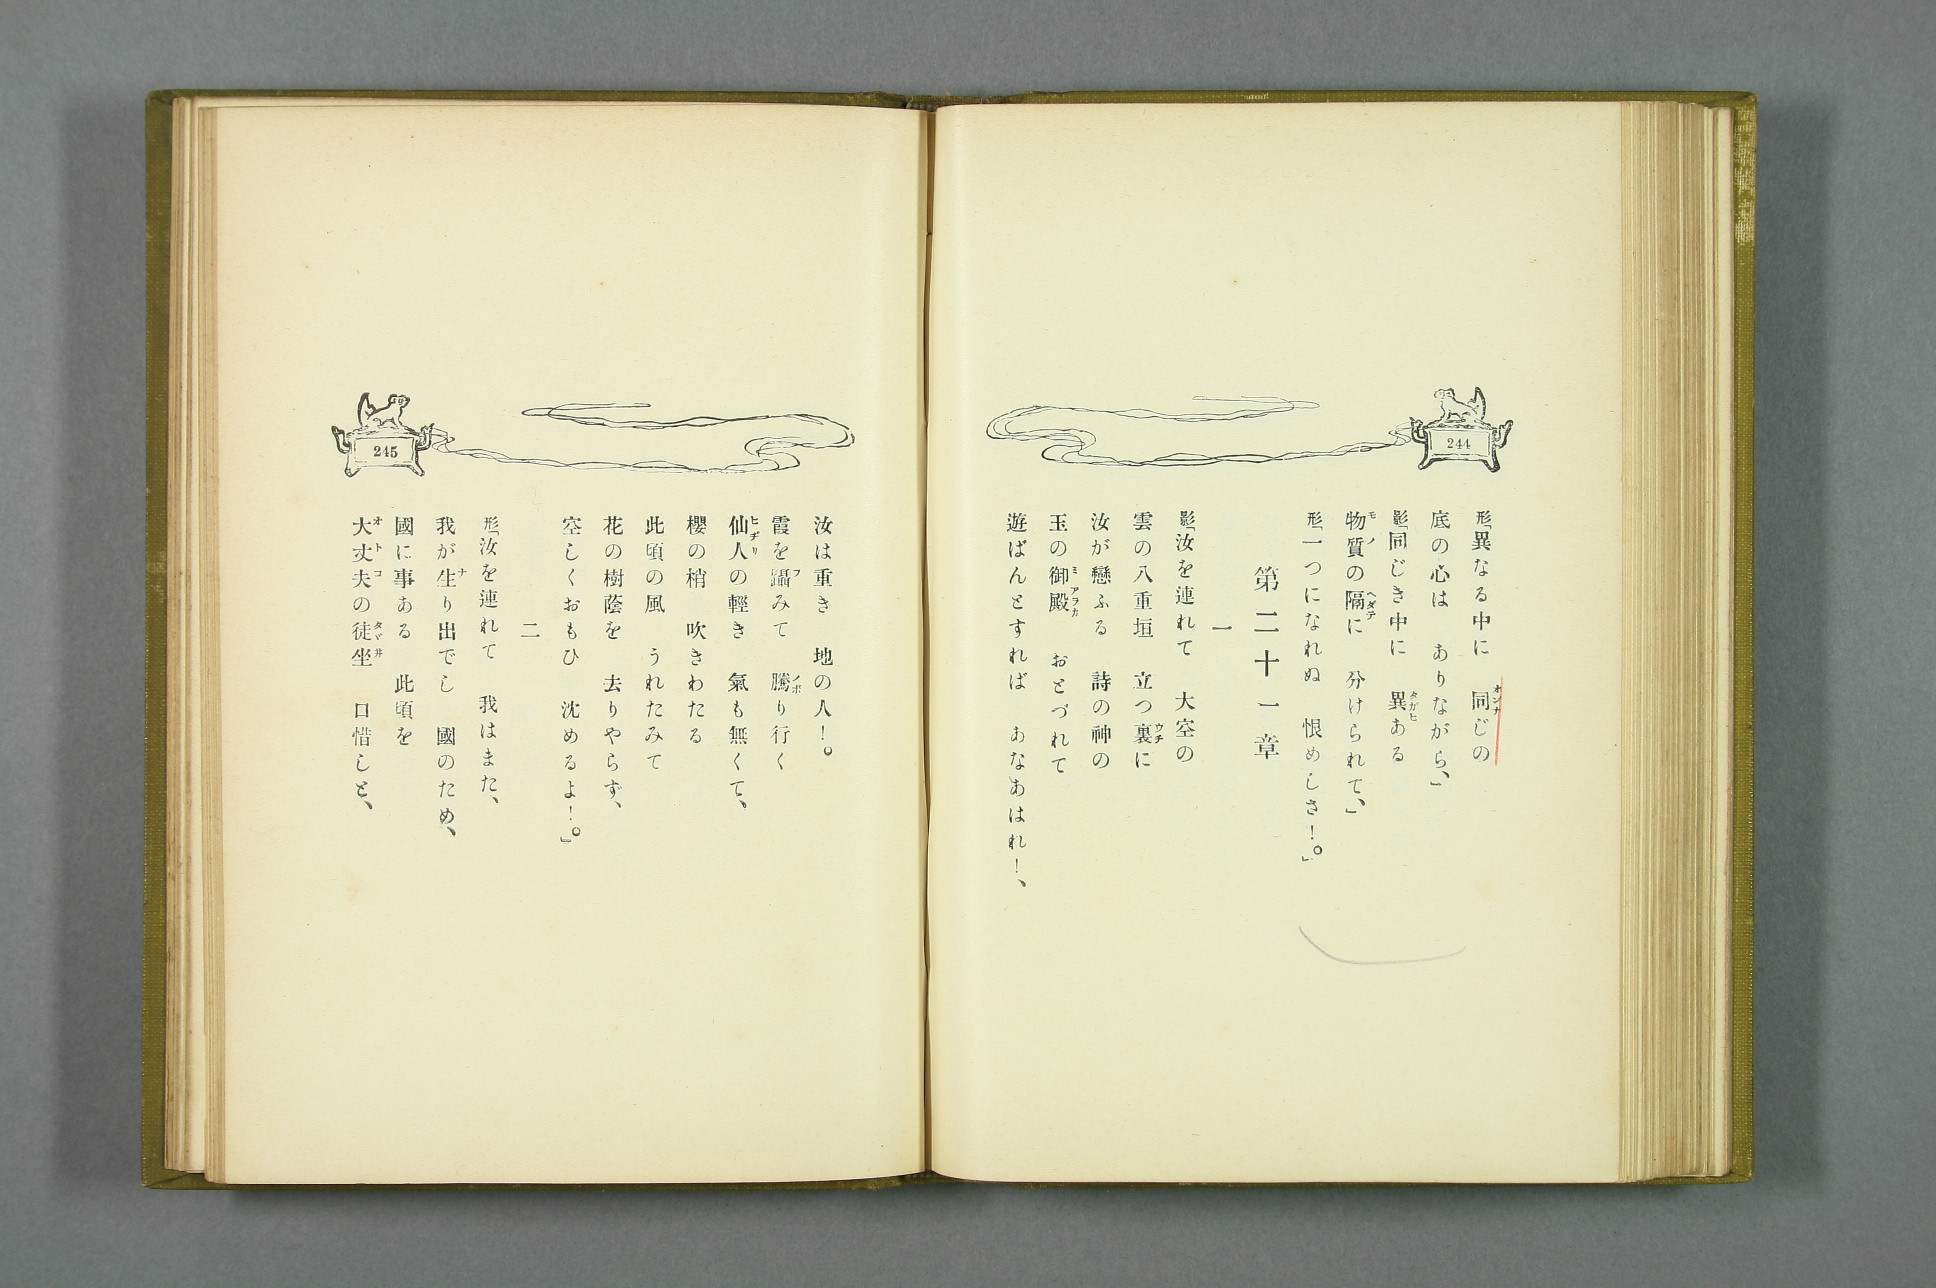 244
形「異なる中に　同じの
底の心は　ありながら、」
影「同じき中に　異ある
物質の隔に　分けられて、」
形「一つになれぬ　恨めしさ！。」
第二十一章
一
影「汝を連れて　大空の
雲の八重垣　立つ裏に
汝が戀ふる　詩の神の
玉の御殿　おとづれて
遊ばんとすれば　あなあはれ！、
245
汝は重き　地の人！。
霞を躡みて　騰り行く
仙人の輕き　氣も無くて、
櫻の梢　吹きわたる
此頃の風　うれたみて
花の樹蔭を　去りやらず、
空しくおもひ　沈めるよ！。」
二
形「汝を連れて　我はまた、
我が生り出でし　國のため、
國に事ある　此頃を
大丈夫の徒坐　口惜しと、